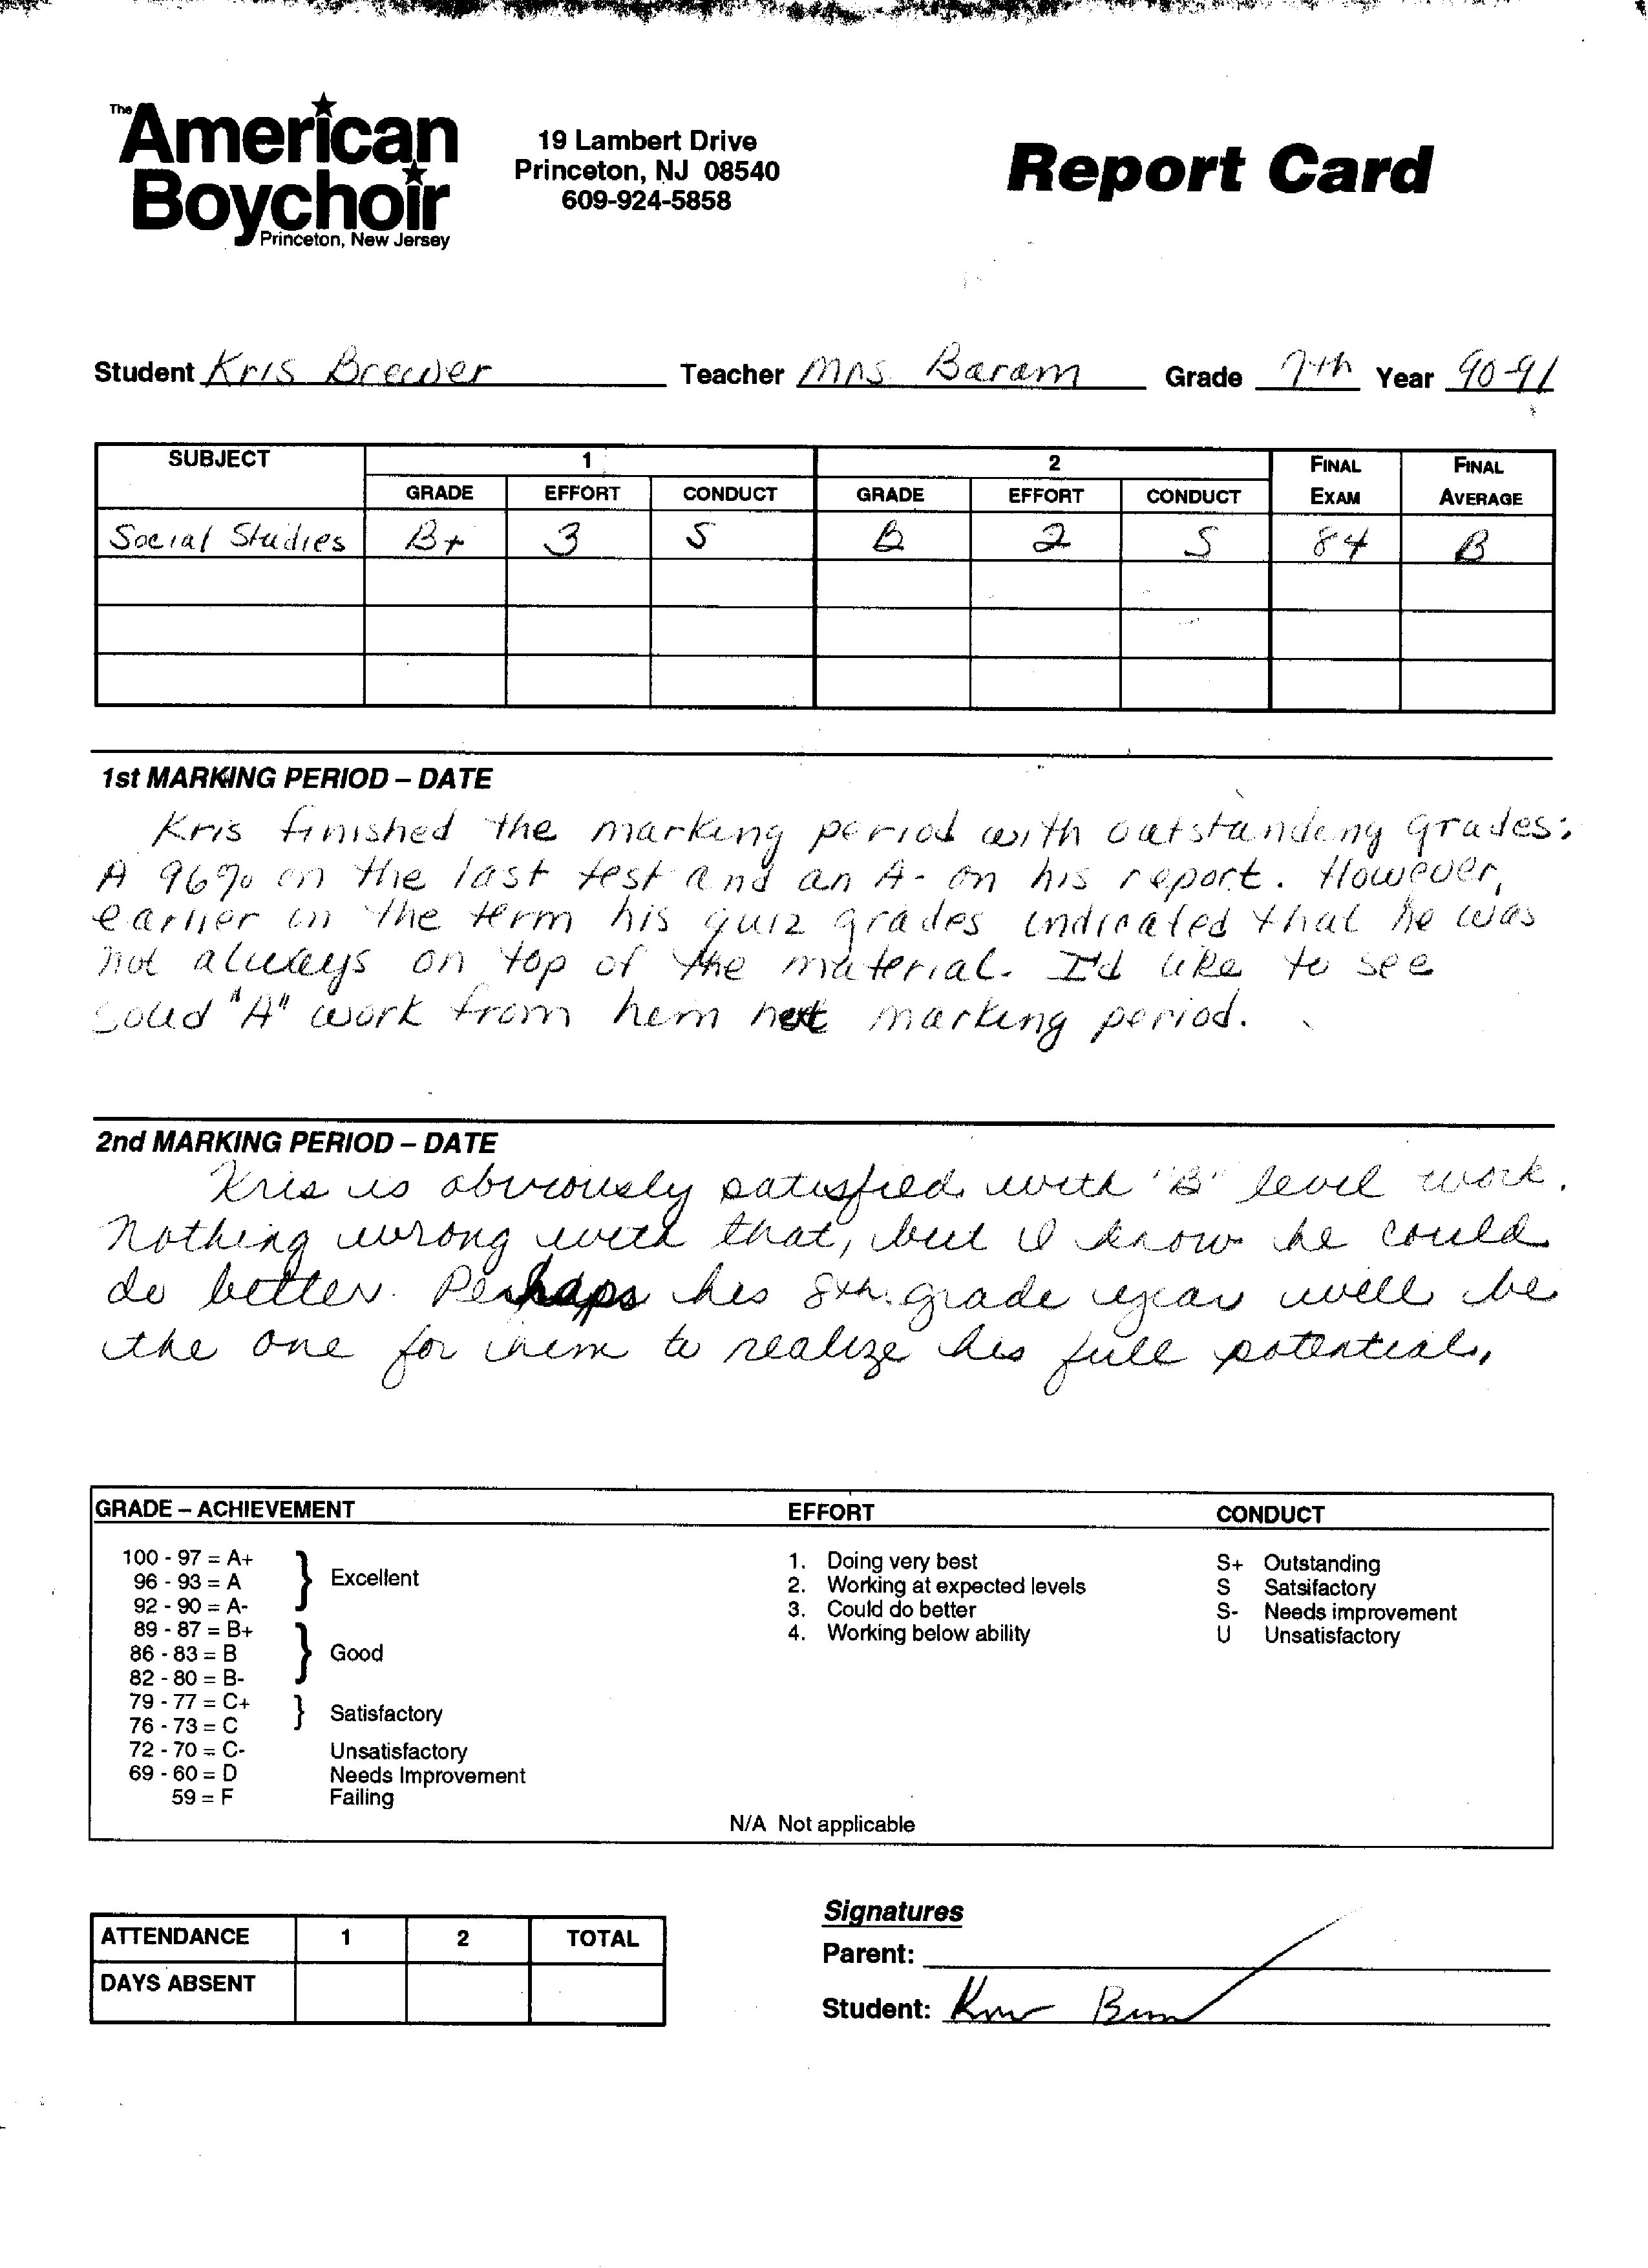 The American
Boychoir
Princeton, New Jersey
19 Lambert Drive
Princeton, NJ 08540
609-924-5858
Report Card
Student Kris Brewer Teacher Mrs. Baram Grade 7th Year 90-91
SUBJECT 1 2 FINAL EXAM FINAL AVERAGE
GRADE EFFORT CONDUCT GRADE EFFORT CONDUCT
Social Studies B+ 3 S B 2 S 84 B
1st MARKING PERIOD – DATE
Kris finished the marking period with outstanding grades:
A 96% on the last test and an A- on his report. However,
earlier in the term his quiz grades indicated that he was
not always on top of the material. I'd like to see
solid "A" work from him next marking period.
2nd MARKING PERIOD – DATE
Kris is obviously satisfied with "B" level work.
Nothing wrong with that, but I know he could
do better. Perhaps his 8th grade year will be
the one for him to realize his full potential.
GRADE – ACHIEVEMENT EFFORT CONDUCT
100 - 97 = A+
96 - 93 = A Excellent
92 - 90 = A-
89 - 87 = B+
86 - 83 = B Good
82 - 80 = B-
79 - 77 = C+
Satisfactory
76 - 73 = C
72 - 70 = C- Unsatisfactory
69 - 60 = D Needs Improvement
59 = F Failing
1. Doing very best
2. Working at expected levels
3. Could do better
4. Working below ability
S+ Outstanding
S Satsifactory
S- Needs improvement
U Unsatisfactory
N/A Not applicable
ATTENDANCE 1 2 TOTAL
DAYS ABSENT
Signatures
Parent:
Student: